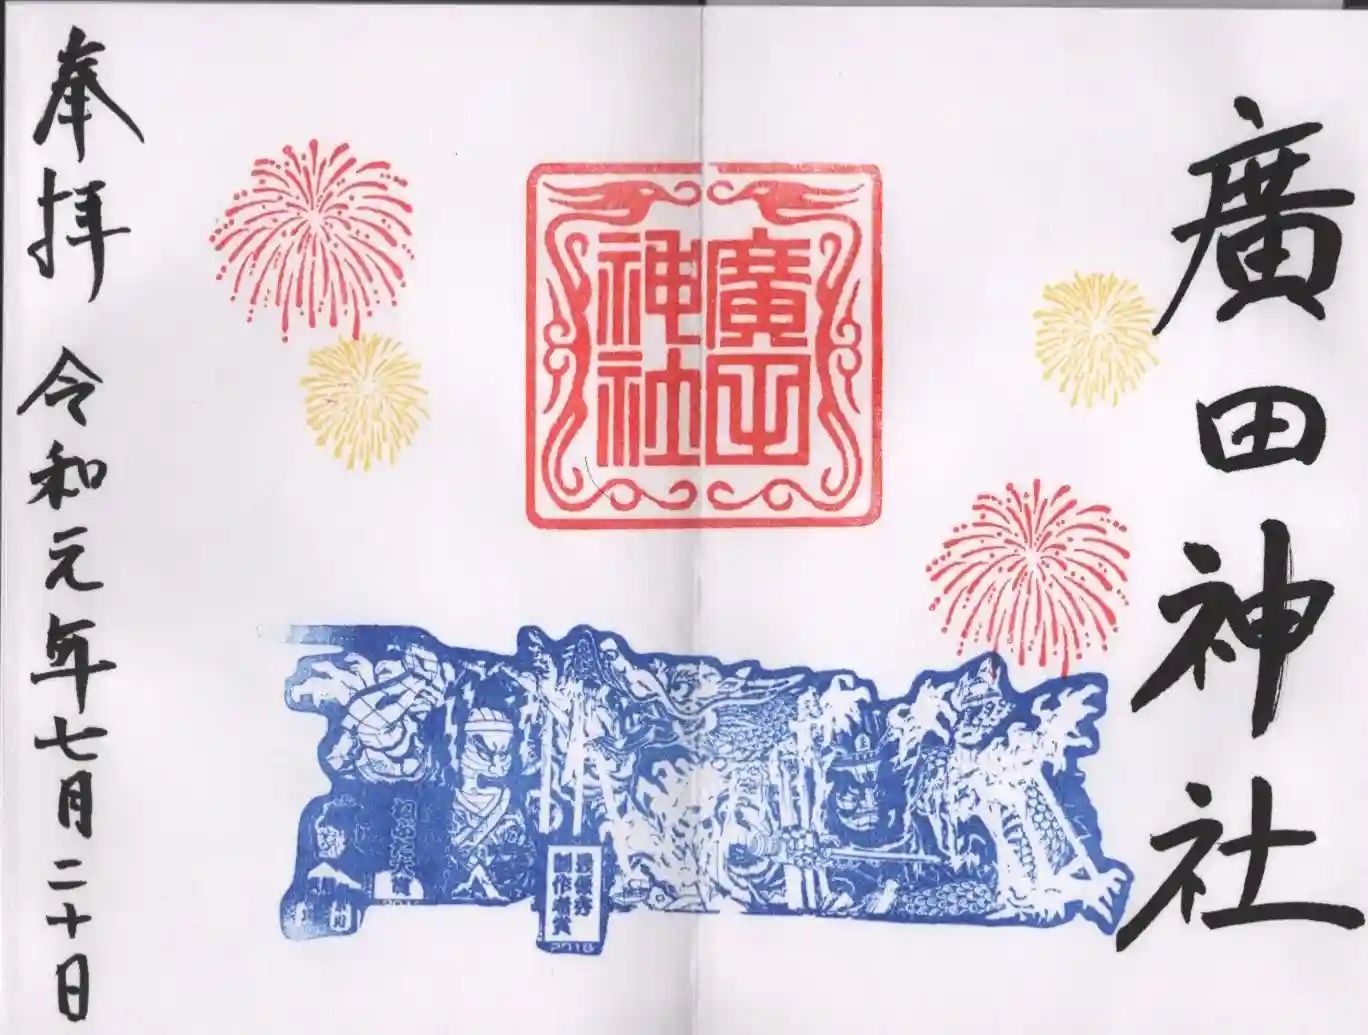 廣田神社
廣田
神社
最優秀
制作者賞
2018
奉拝 令和元年七月二十日